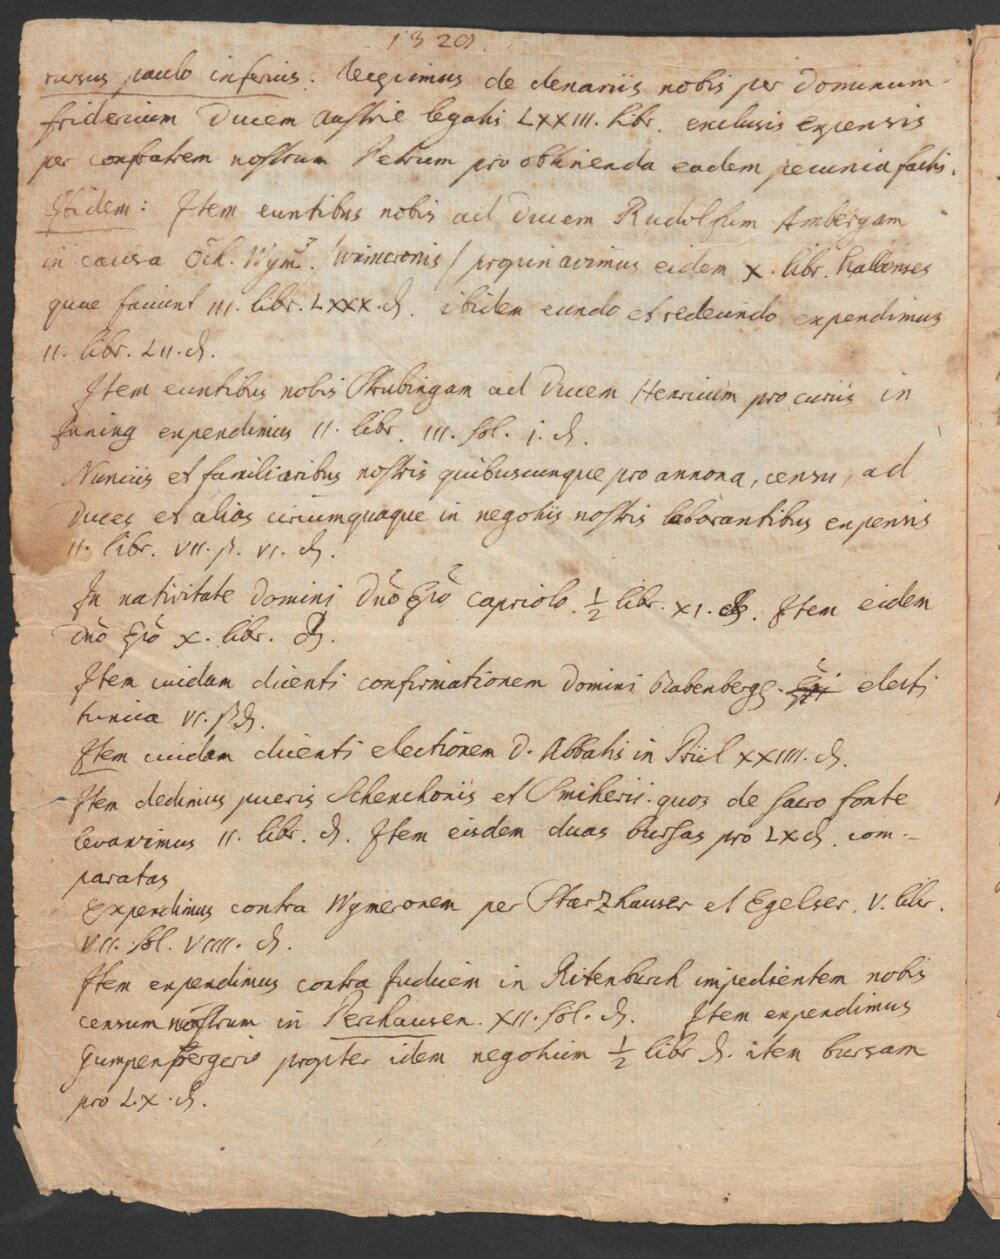 1329.
rursus paulo inferius: Recepimus de denariis nobis per Dominum
fridericum Ducem Austrie legatis LXXIII. libr. exclusis expensis
per confratrem nostrum Petrum pro obtinenda eadem pecunia factis.
Ibidem: Item euntibus nobis ad Ducem Rudolfum Ambergam
in causa Wym. /Wimeronis/ propinavimus eidem x. libr. hallenses
quae faciunt III. libr. LXXX. d. ibidem eundo et redeundo expendimus
II. libr. LII. d.
Item euntibus nobis Strubingam ad Ducem Henricum pro curiis in
expendimus II. libr. III. sol. j. d.
Nunciis et familiaribus nostris quibuscunque pro annona, censu, ad
Duces et alias circumquaque in negotiis nostris laborantibus expensis
II. libr. VII. ß. VI. d.
In nativitate Domini Dnō Epō capriolo. ½ libr. XI. d. Item eidem
Dnō Epō x. libr. d.
Item cuidam dicenti confirmationem Domini Babenberg. Epi electi
tunica VI. ß d.
Item cuidam dicenti electionem D. Abbatis in Prül XXIIII. d.
Item dedimus pueris Schenchonis et Smiherii. quos de sacro fonte
levavimus II. libr. d. Item eisdem duas bursas pro LX d. com-
paratas
Expendimus contra Wymeronem per Starzhauser et Egelser. V. libr.
VII. sol. VIIII. d.
Item expendimus contra Judicem in Ritenburch impedientem nobis
censum nostrum in Perchausen. XII. sol. d. Item expendimus
Gumpenpergerio propter idem negotium ½ libr d. item bursam
pro L.X. d.